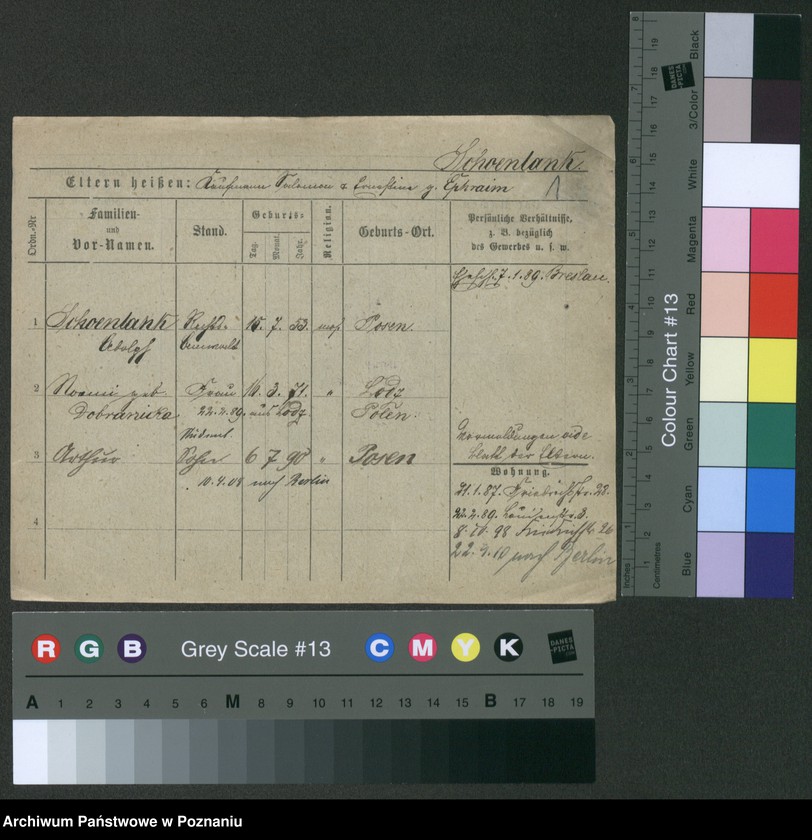 Schoenlank.
Eltern heißen: Kaufmann Salomon & Ernestine g. Ephraim
Ordn.-Nr.
Familien-
und
Vor-Namen.
Stand.
Geburts-
Tag.
Monat.
Jahr.
Religion.
Geburts-Ort.
Persönliche Verhältnisse,
z. B. bezüglich
des Gewerbes u. s. w.
7. 1. 89. Breslau.
1 Schoenlank Rechts- 15. 7. 53. mos. Posen.
Adolph anwalt
2 Noemi geb. Frau 16. 3. 71. " Lodz
Dobranicka 22.4.89. aus Lodz. Polen.
Student.
3 Arthur Sohn 6 7 90 " Posen
10.4.08 nach Berlin
4
Anmeldungen
Blatt der Eltern.
Wohnung.
21.1.87. Friedrichstr. 28.
22.4.89. 3.
8.10.98 Friedrichstr. 26
22.9.10 nach Berlin
Inches
Centimetres
Colour Chart #13
Blue
Cyan
Green
Yellow
Red
Magenta
White
3/Color
Black
DANES
-PICTA
1 2 3 4 5 6 7 8
1 2 3 4 5 6 7 8 9 10 11 12 13 14 15 16 17 18 19
R G B Grey Scale #13 C M Y K
DANES
-PICTA
A 1 2 3 4 5 6 M 8 9 10 11 12 13 14 15 B 17 18 19
Archiwum Państwowe w Poznaniu